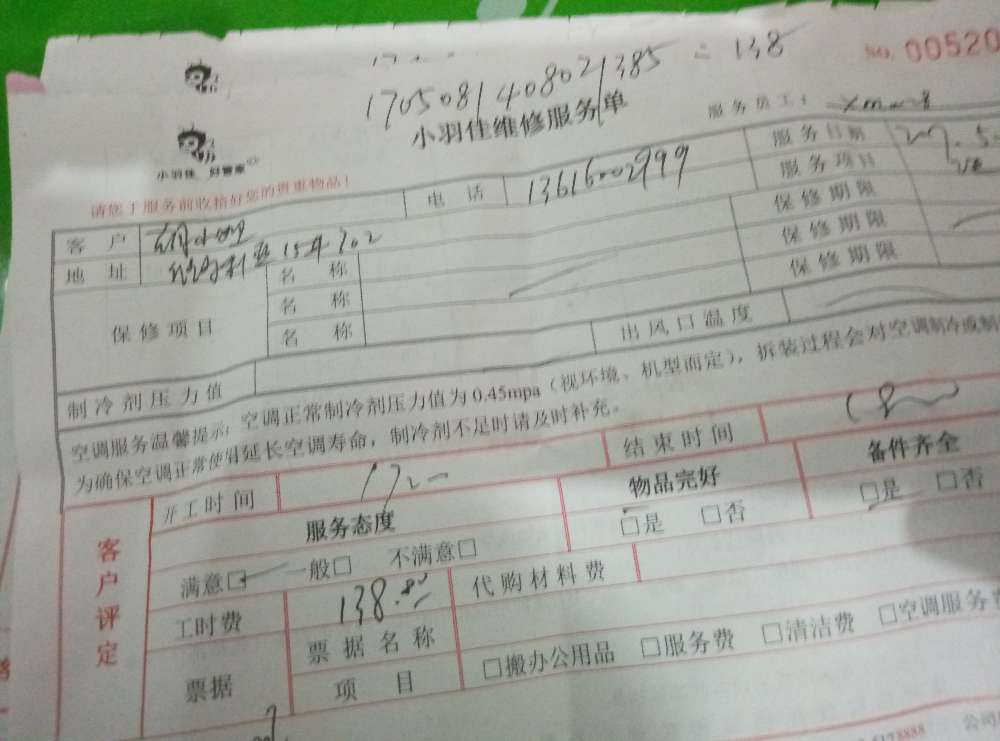 1705081408021385 = 138
NO. 00520
小羽佳维修服务单
服务员工:
小羽佳 好管家
请您于服务前收拾好您的贵重物品!
电话 13616002999 服务日期
服务项目
客户
地址 15#702
保修项目 名称 保修期限
名称 保修期限
名称 保修期限
制冷剂压力值 出风口温度
空调服务温馨提示:空调正常制冷剂压力值为0.45mpa(视环境、机型而定),拆装过程会对空调制冷或制
为确保空调正常使用延长空调寿命,制冷剂不足时请及时补充。
开工时间 结束时间
客户评定
服务态度 物品完好 备件齐全
满意□ 一般□ 不满意□ □是 □否 □是 □否
工时费 138 代购材料费
票据 票据名称
项目 □搬办公用品 □服务费 □清洁费 □空调服务
8888 公司